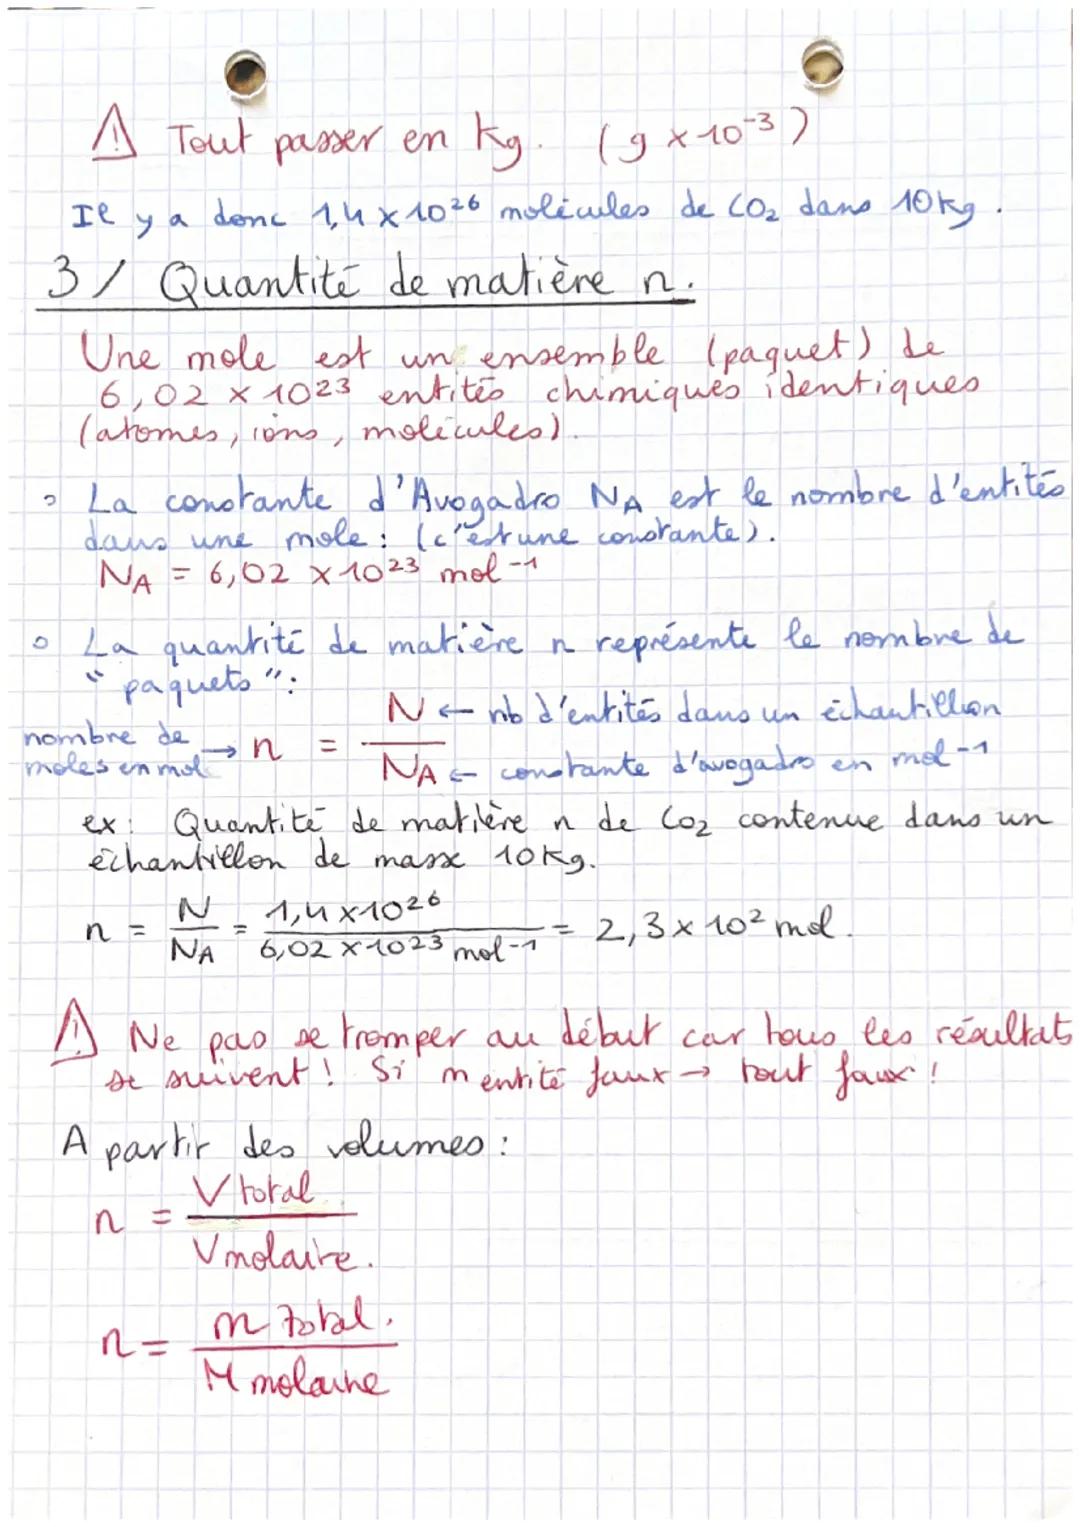 ⚠ Tout passer en kg. (g × 10⁻³)
Il y a donc 1,4 × 10²⁶ molécules de CO₂ dans 10kg.
3/ Quantité de matière n.
Une mole est un ensemble (paquet) de
6,02 × 10²³ entités chimiques identiques
(atomes, ions, molécules).
◦ La constante d'Avogadro NA est le nombre d'entités
dans une mole : (c'est une constante).
NA = 6,02 × 10²³ mol⁻¹
◦ La quantité de matière n représente le nombre de
"paquets" :
nombre de moles en mol → n = N / NA
N ← nb d'entités dans un échantillon
NA ← constante d'avogadro en mol⁻¹
ex : Quantité de matière n de CO₂ contenue dans un
échantillon de masse 10kg.
n = N / NA = 1,4 × 10²⁶ / 6,02 × 10²³ mol⁻¹ = 2,3 × 10² mol.
⚠ Ne pas se tromper au début car tous les résultats
se suivent ! Si m entité faux → tout faux !
A partir des volumes :
n = V total / V molaire.
n = m total. / M molaire